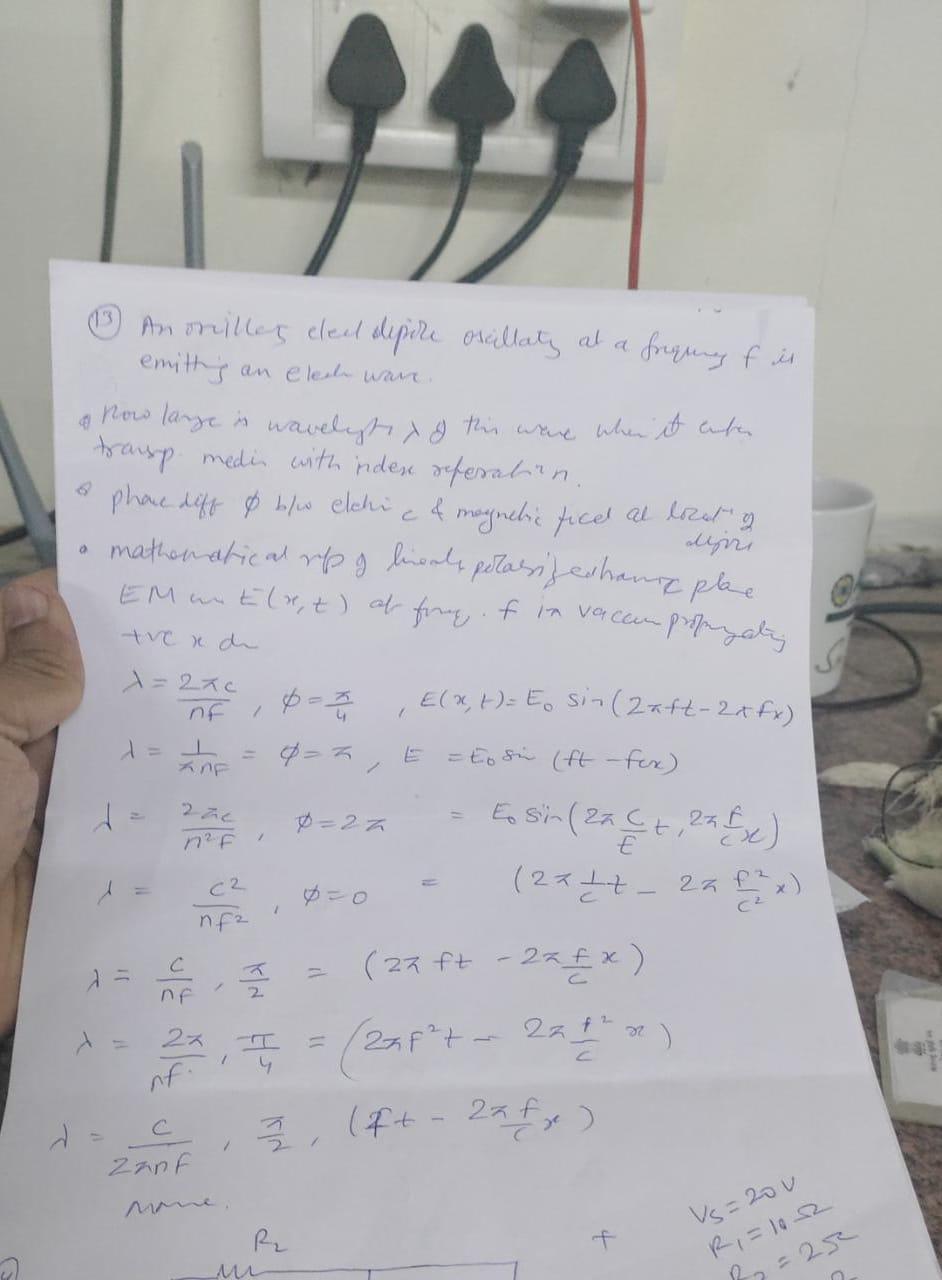 (13) An oscillatg elect dipole oscillatg at a frequency f is
emitting an elect wave.
how large is wavelegth λ of this wave when it enter
transp. media with index referation n.
phase diff ϕ b/w elctric & magnetic field at locat of
dipole
mathematical rep of linearly polarized harmonic plane
EM E(x,t) at freq. f in vaccum propagating
+ve x dn
λ = 2πc/nf , ϕ = π/4 , E(x,t) = E₀ sin(2πft - 2πfx)
λ = 1/πnf = ϕ = π , E = E₀ sin (ft - fcx)
λ = 2πc/n²f , ϕ = 2π = E₀ sin(2π c/f t, 2π f/c x)
λ = c²/nf² , ϕ = 0 = (2π 1/c t - 2π f²/c² x)
λ = c/nf , π/2 = (2π ft - 2π f/c x)
λ = 2π/nf , π/4 = (2πf²t - 2π f²/c x)
λ = c/2πnf , π/2 , (ft - 2π f/c x)
None.
R₂ +
Vs = 20V
R₁ = 10Ω
= 25Ω